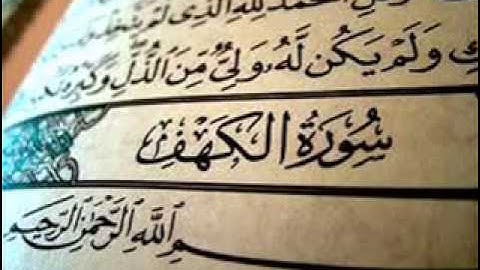 الحمد لله الذي لم
ولم يكن له ولي من الذل وكبره
سورة الكهف
بسم الله الرحمن الرحيم